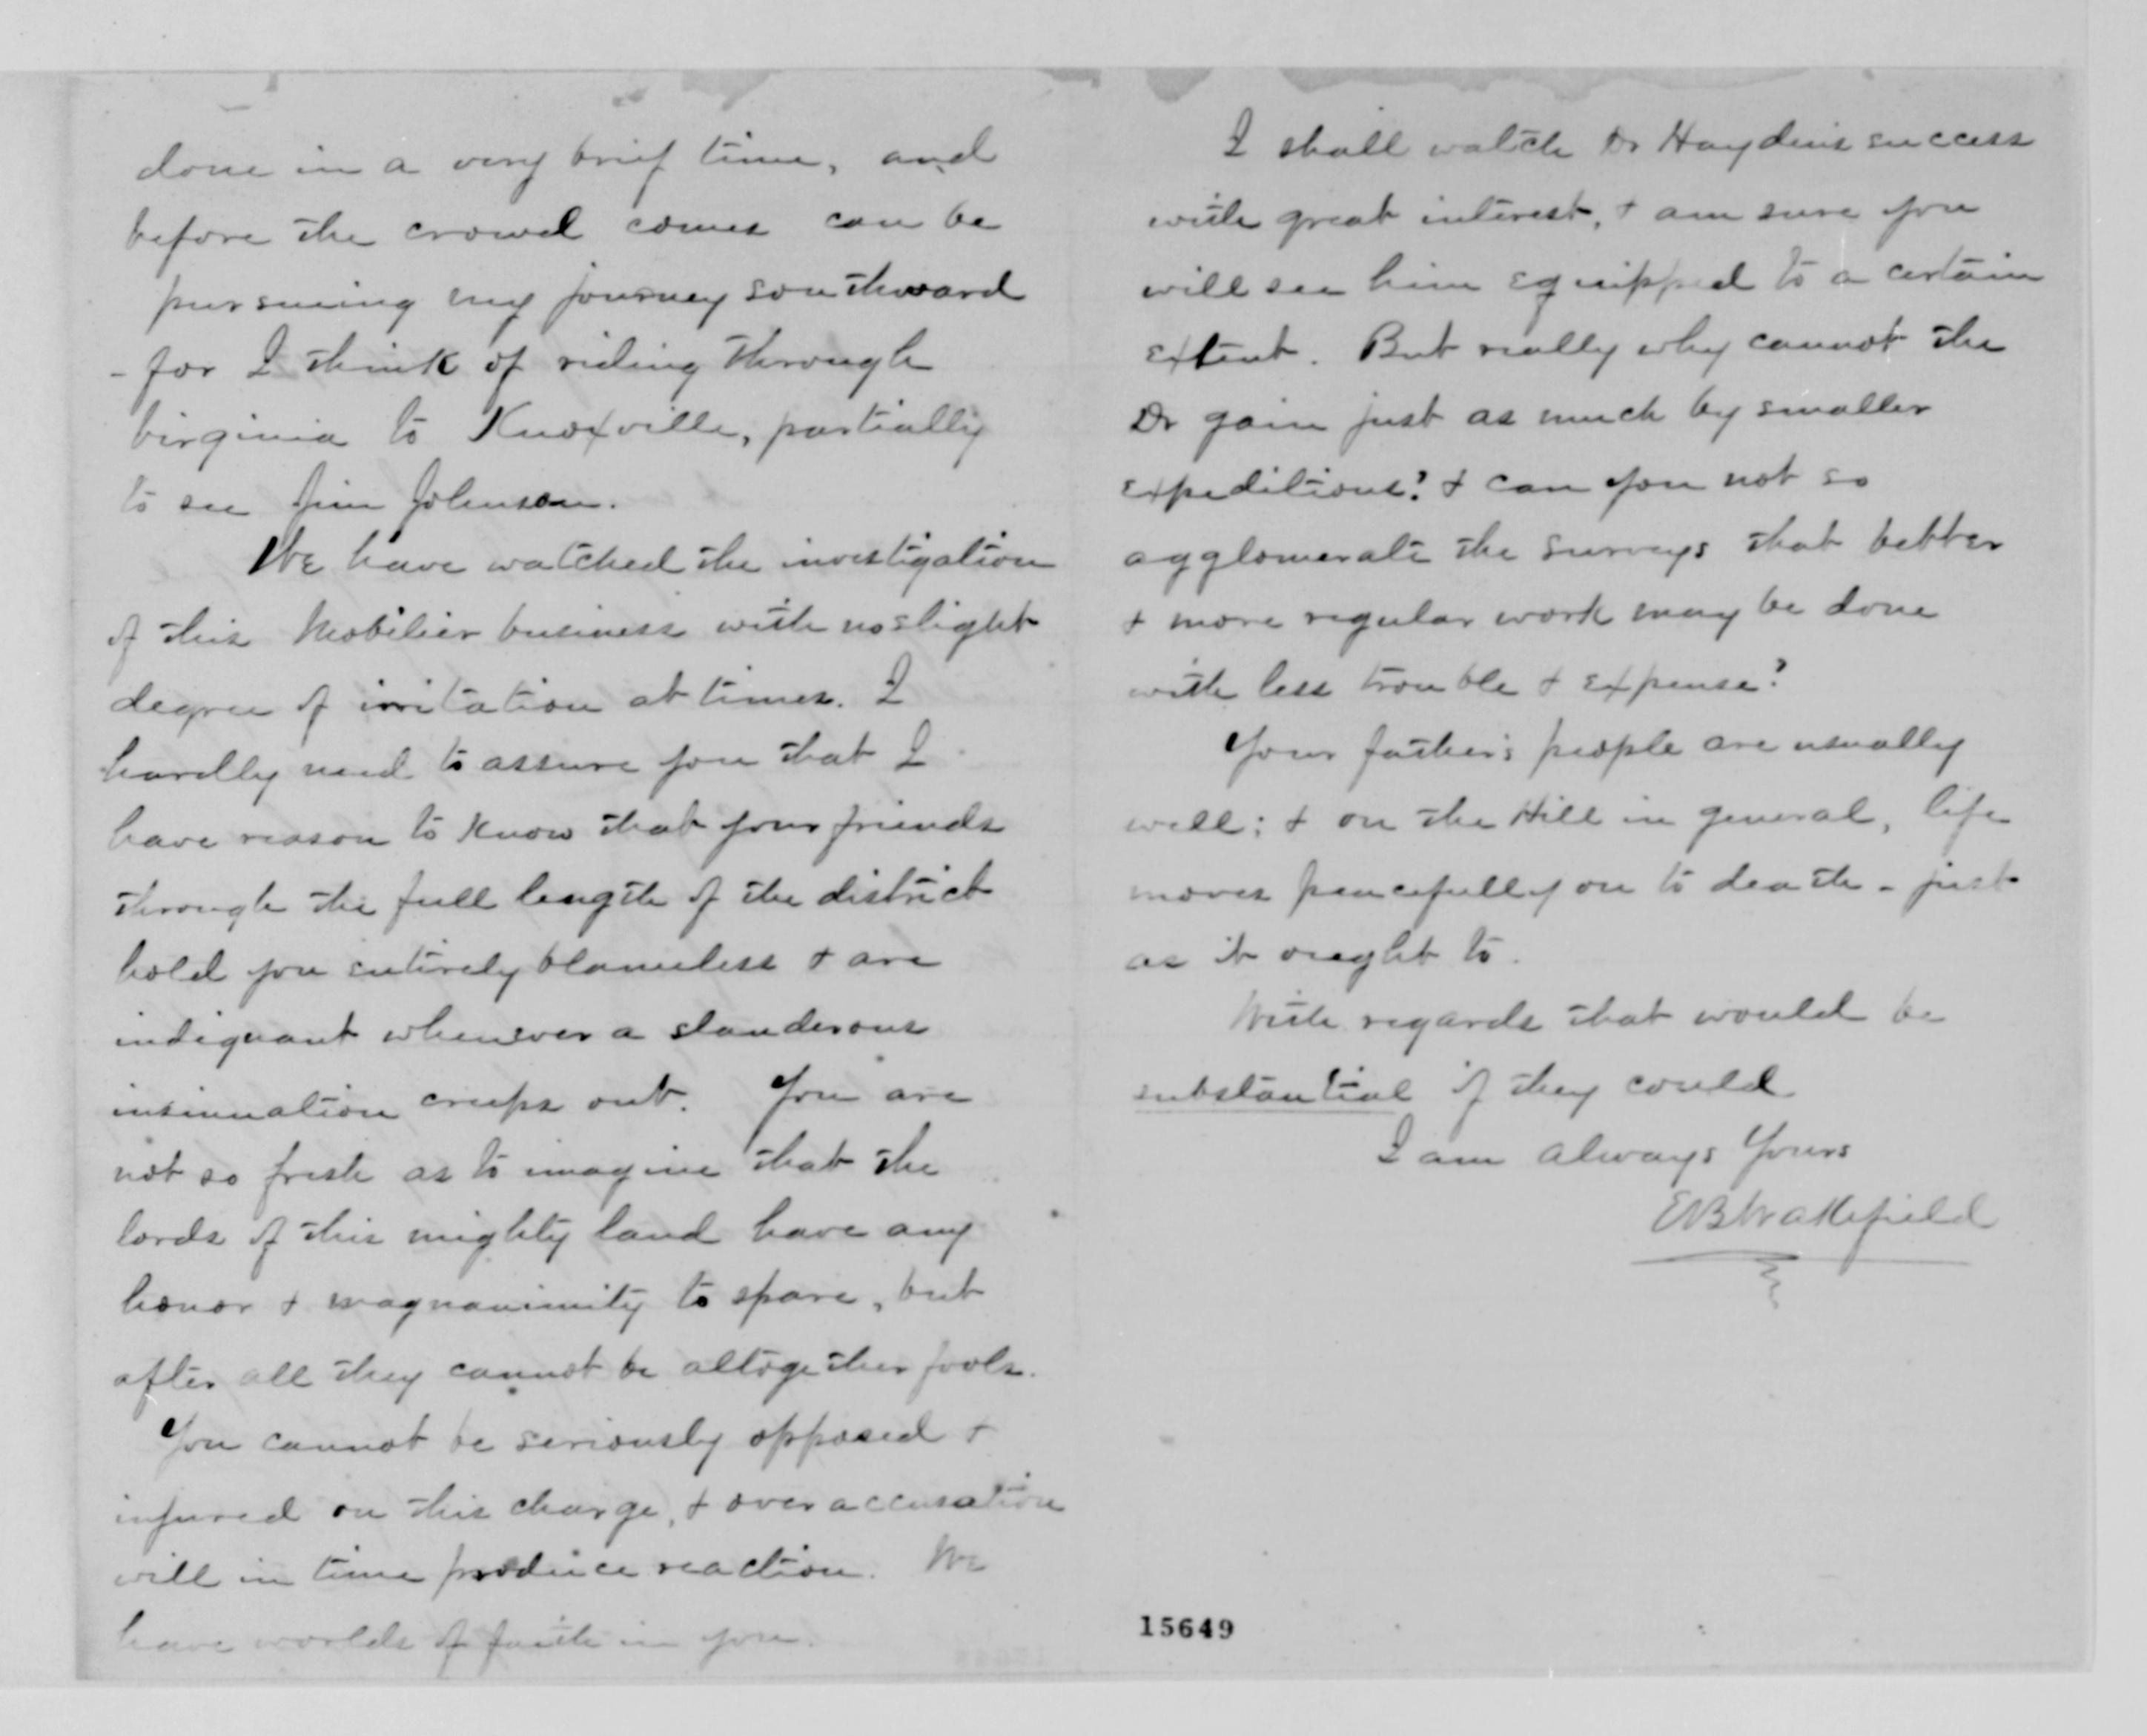 done in a very brief time, and
before the crowd comes can be
pursuing my journey southward
- for I think of riding through
Virginia to Knoxville, partially
to see Jim Johnson.
We have watched the investigation
of this Mobilier business with no slight
degree of irritation at times. I
hardly need to assure you that I
have reason to know that your friends
through the full length of the district
hold you entirely blameless + are
indignant whenever a slanderous
insinuation creeps out. You are
not so fresh as to imagine that the
lords of this mighty land have any
honor + magnanimity to spare, but
after all they cannot be altogether fools.
You cannot be seriously opposed +
injured on this charge, + over accusation
will in time produce reaction. We
have worlds of faith in you.
I shall watch Dr Hayden's success
with great interest, + am sure you
will see him equipped to a certain
extent. But really why cannot the
Dr gain just as much by smaller
expeditions? + can you not so
agglomerate the surveys that better
+ more regular work may be done
with less trouble + expense?
Your father's people are usually
well; + on the Hill in general, life
moves peacefully on to death - just
as it ought to.
With regards that would be
substantial if they could
I am always Yours
EB Wakefield
15649